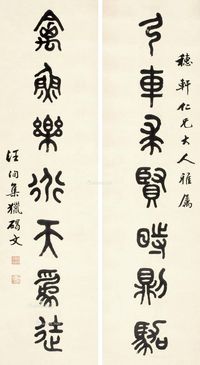 穗軒仁兄大人雅屬
弓車賢時駱
禽魚樂天為徒
汪洵集獵碣文